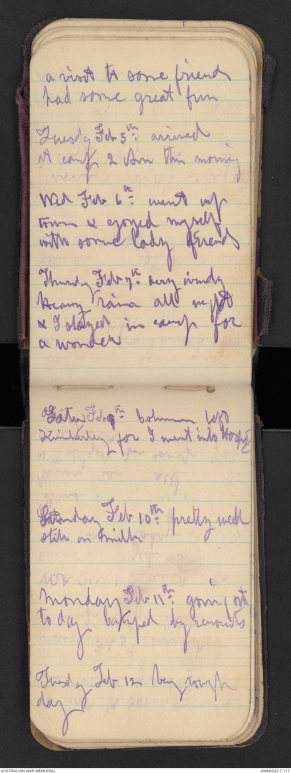 a visit to some friends
had some great fun
Tuesday Feb 5th arrived
at camp 2 this morning
Wed Feb 6th went up
town & enjoyed myself
with some lady friends
Thursday Feb 7th very windy
Heavy rain all night
& I stayed in camp for
a wonder
Feb 9th
for I went into Hospital
Saturday Feb 10th pretty well
still in
Monday Feb 11th going out
to day by
Tuesday Feb 12 very rough
day
AUSTRALIAN WAR MEMORIAL